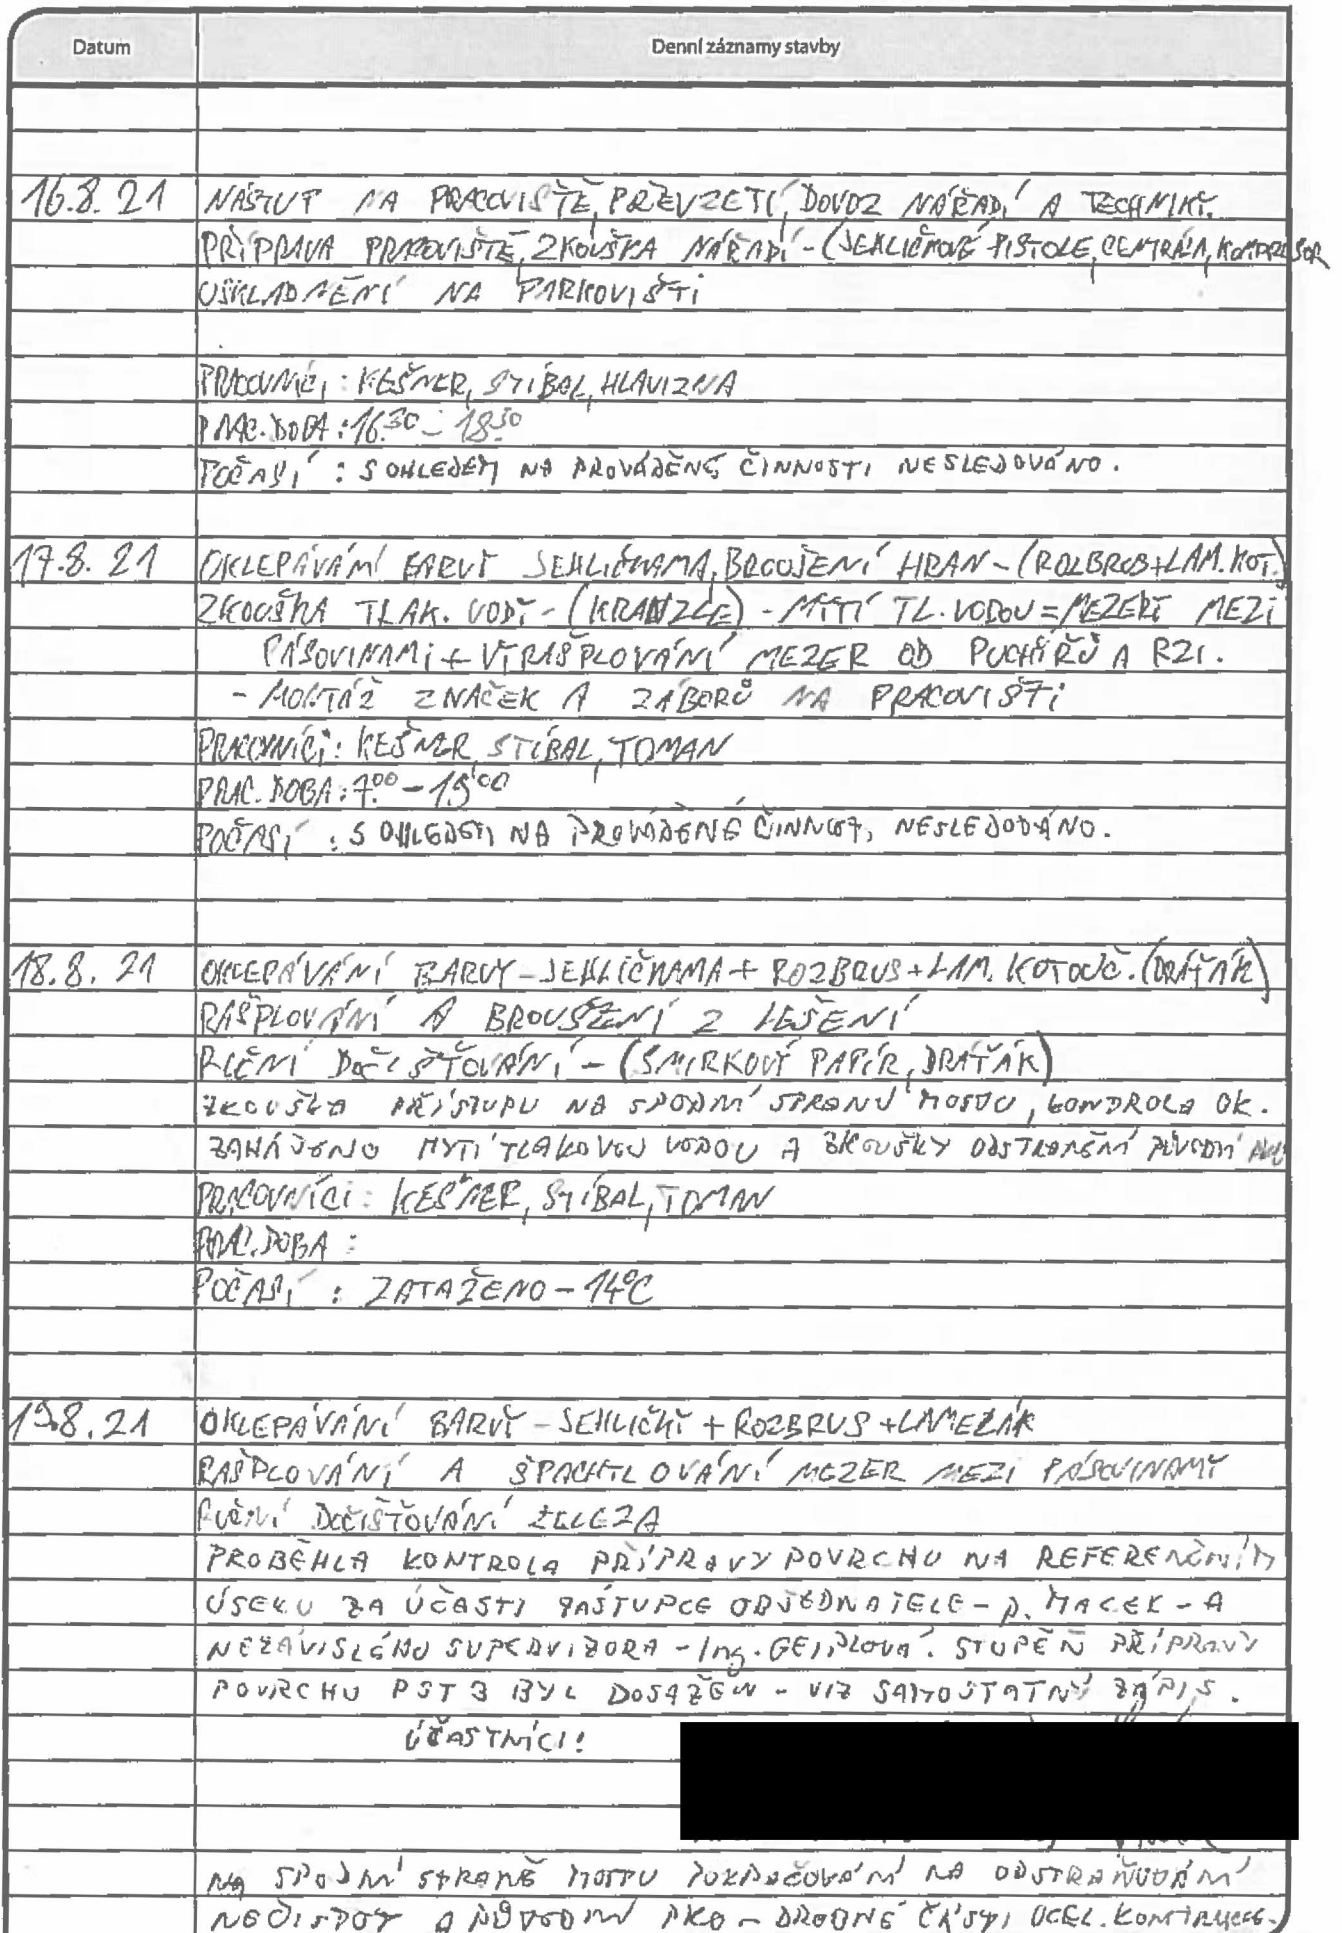 Datum
Denní záznamy stavby
16.8.21 NÁSTUP NA PRACOVIŠTĚ, PŘEVZETÍ, DOVOZ NÁŘADÍ A TECHNIKY.
PŘÍPRAVA PRACOVIŠTĚ, ZKOUŠKA NÁŘADÍ - (JEHLIČKOVÉ PISTOLE, CENTRÁLA, KOMPRESOR
USKLADNĚNÍ NA PARKOVIŠTI
PRACOVNÍCI: KEŠNER, STIBAL, HLAVIZNA
PRAC. DOBA: 16.30 - 18.30
POČASÍ: S OHLEDEM NA PROVÁDĚNÉ ČINNOSTI NESLEDOVÁNO.
17.8.21 OKLEPÁVÁNÍ BARVY JEHLIČKAMA, BROUŠENÍ HRAN - (ROZBRUS+LAM.KOT.)
ZKOUŠKA TLAK. VODY - (KRANZLE) - MYTÍ TL. VODOU = MEZERY MEZI
PÁSOVINAMI + VYRAŠPLOVÁNÍ MEZER OD PUCHÝŘŮ A RZI.
- MONTÁŽ ZNAČEK A ZÁBORŮ NA PRACOVIŠTI
PRACOVNÍCI: KEŠNER, STIBAL, TOMAN
PRAC. DOBA: 7.00 - 19.00
POČASÍ: S OHLEDEM NA PROVÁDĚNÉ ČINNOSTI NESLEDOVÁNO.
18.8.21 OKLEPÁVÁNÍ BARVY - JEHLIČKAMA + ROZBRUS + LAM. KOTOUČ. (DRÁŤÁK)
RAŠPLOVÁNÍ A BROUŠENÍ Z LEŠENÍ
RUČNÍ DOČIŠŤOVÁNÍ - (SMIRKOVÝ PAPÍR, DRÁŤÁK)
ZKOUŠKA PŘÍSTUPU NA SPODNÍ STRANU MOSTU, KONTROLA OK.
ZAHÁJENO MYTÍ TLAKOVOU VODOU A ZKOUŠKY ODSTRANĚNÍ PŮVODNÍ PKO
PRACOVNÍCI: KEŠNER, STIBAL, TOMAN
PRAC. DOBA:
POČASÍ: ZATAŽENO - 14°C
19.8.21 OKLEPÁVÁNÍ BARVY - JEHLIČKY + ROZBRUS + LAMEZÁK
RAŠPLOVÁNÍ A ŠPACHTLOVÁNÍ MEZER MEZI PÁSOVINAMY
RUČNÍ DOČIŠŤOVÁNÍ ŽELEZA
PROBĚHLA KONTROLA PŘÍPRAVY POVRCHU NA REFERENČNÍM
ÚSEKU ZA ÚČASTI ZÁSTUPCE OBJEDNATELE - p. MACEK - A
NEZÁVISLÉHO SUPERVIZORA - Ing. GEIPLOVÁ. STUPEŇ PŘÍPRAVY
POVRCHU PST 3 BYL DOSAŽEN - VIZ SAMOSTATNÝ ZÁPIS.
ÚČASTNÍCI:
NA SPODNÍ STRANĚ MOSTU POKRAČOVÁNÍ NA ODSTRAŇOVÁNÍ
NEČISTOT A PŮVODNÍ PKO - DROBNÉ ČÁSTI OCEL. KONSTRUKCE.